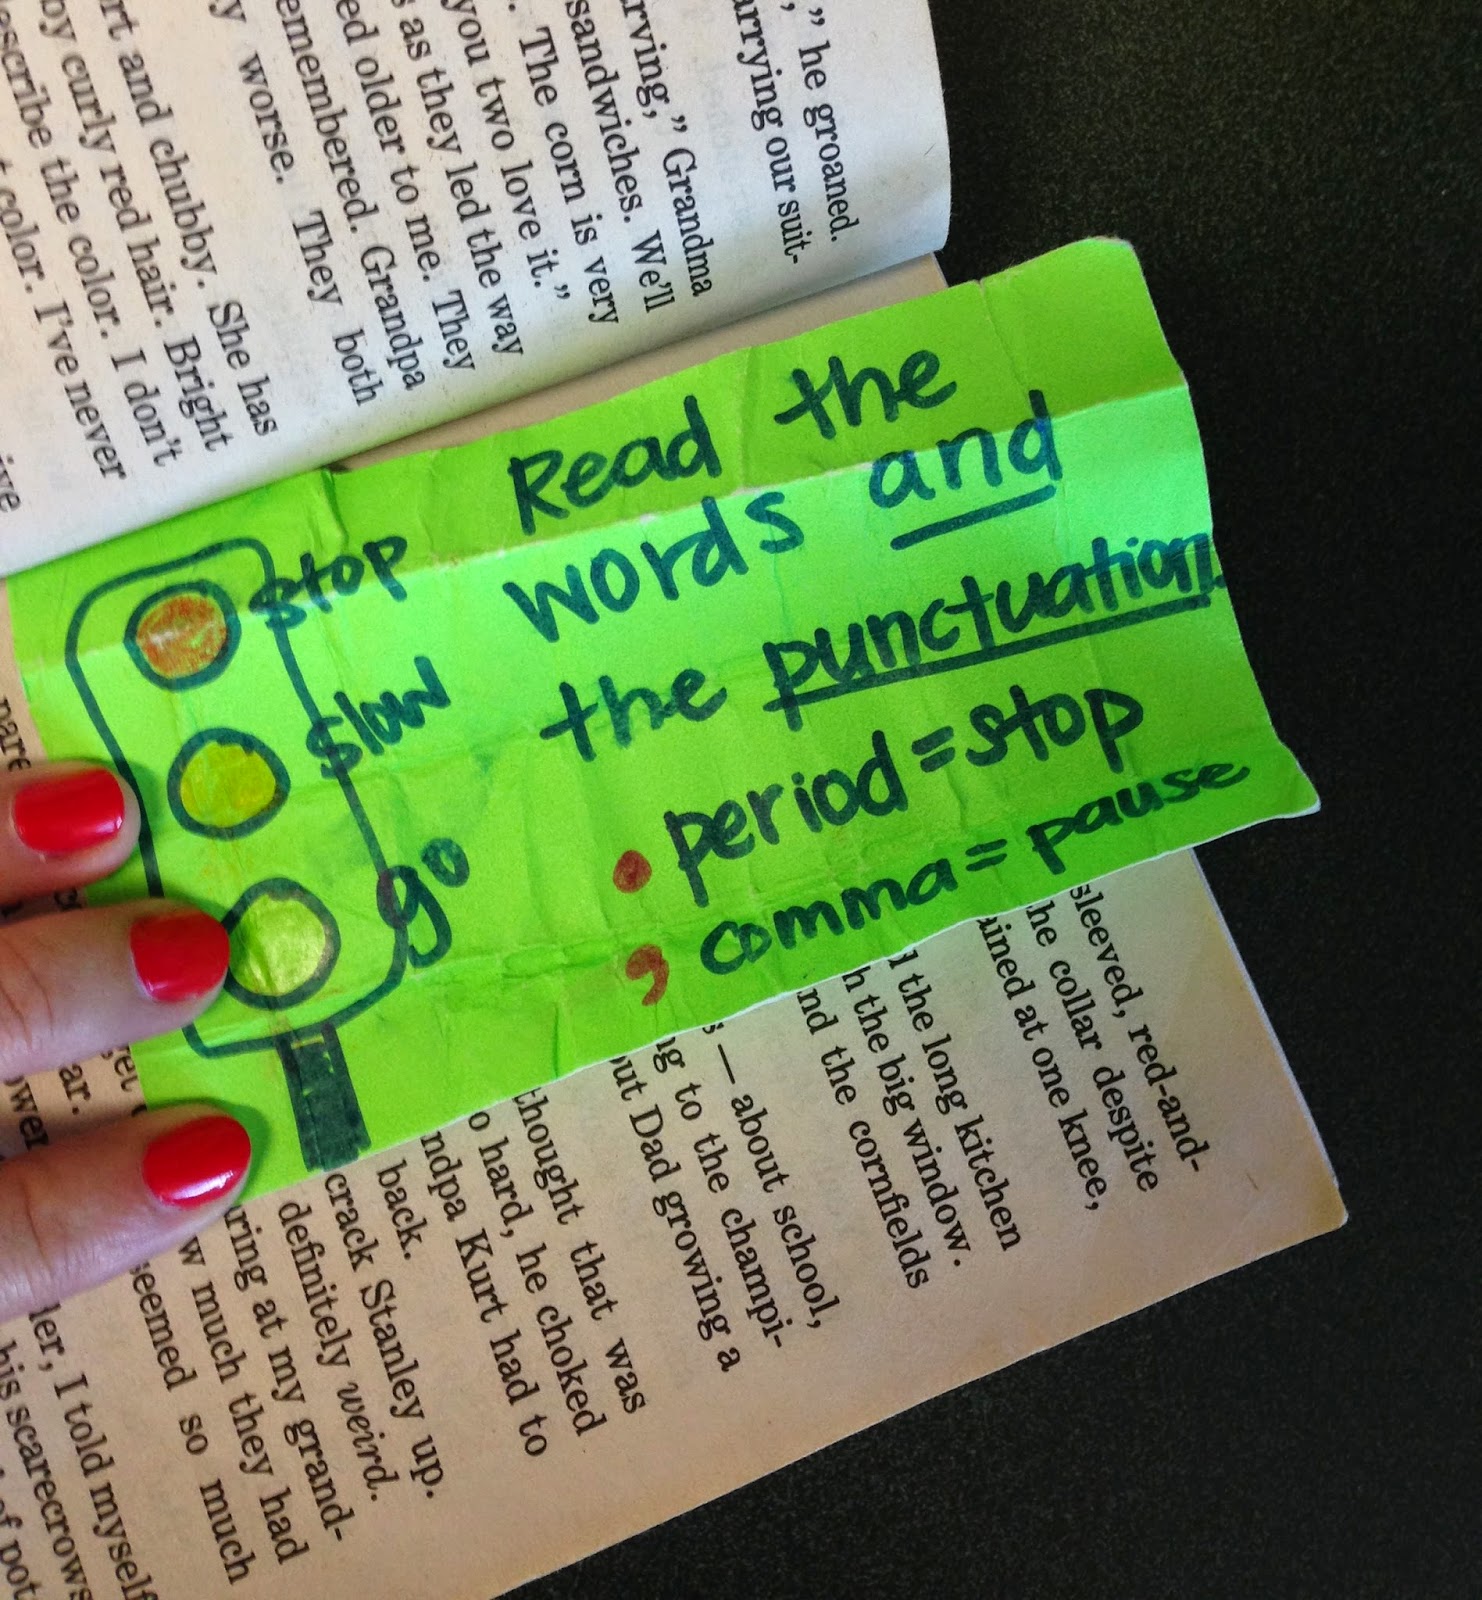 ” he groaned.
arrying our suit-
rving,” Grandma
sandwiches. We'll
. The corn is very
you two love it.”
s as they led the way
ed older to me. They
emembered. Grandpa
y worse. They both
rt and chubby. She has
by curly red hair. Bright
escribe the color. I don't
t color. I've never
Stop
Slow
go
Read the
words and
the punctuation.
• period = stop
, comma = pause
sleeved, red-and-
he collar despite
ained at one knee,
the long kitchen
h the big window.
nd the cornfields
s — about school,
ng to the champi-
out Dad growing a
thought that was
o hard, he choked
ndpa Kurt had to
back.
crack Stanley up.
definitely weird.
ring at my grand-
w much they had
seemed so much
ler, I told myself
his scarecrows